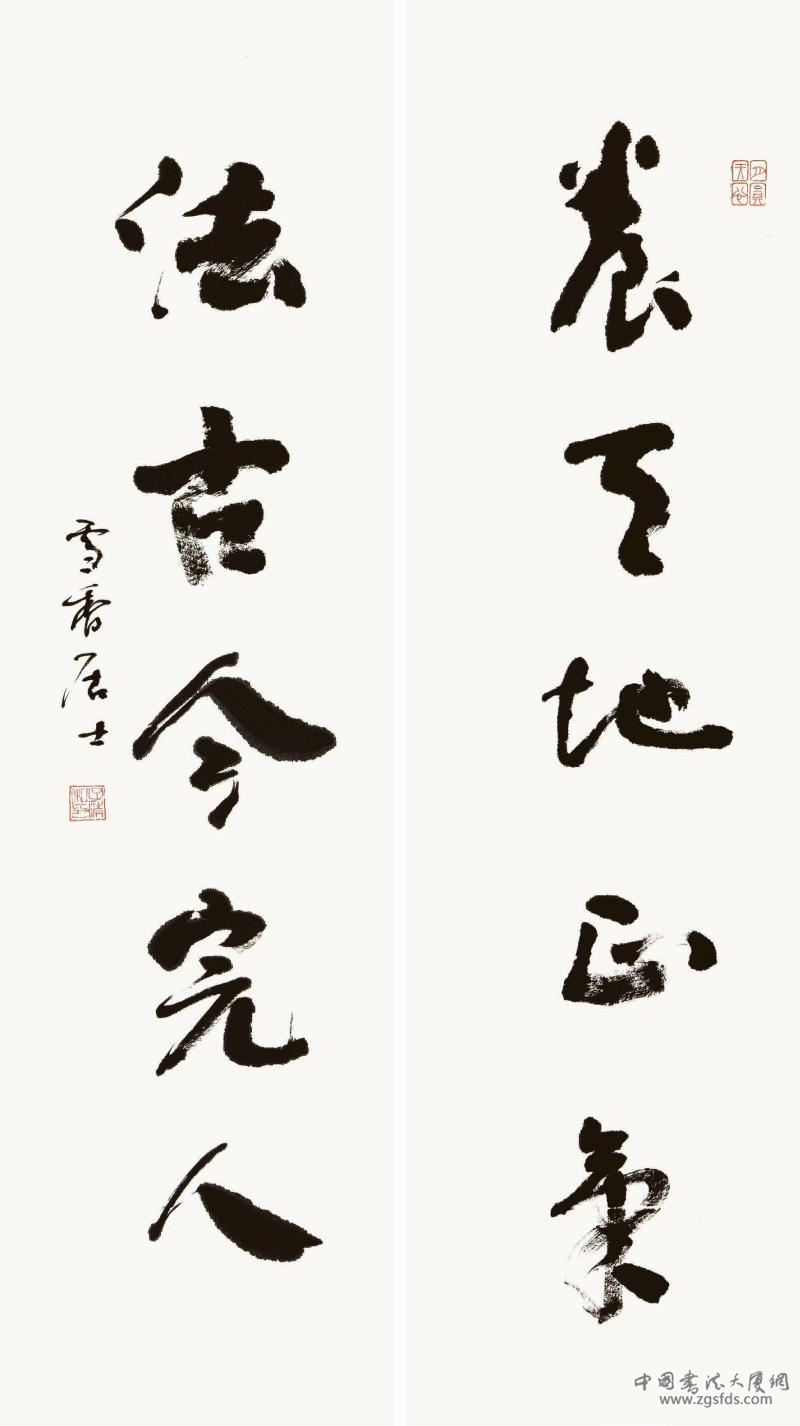 養天地正氣
法古今完人
雪香居士
中國書法大厦網
www.zgsfds.com